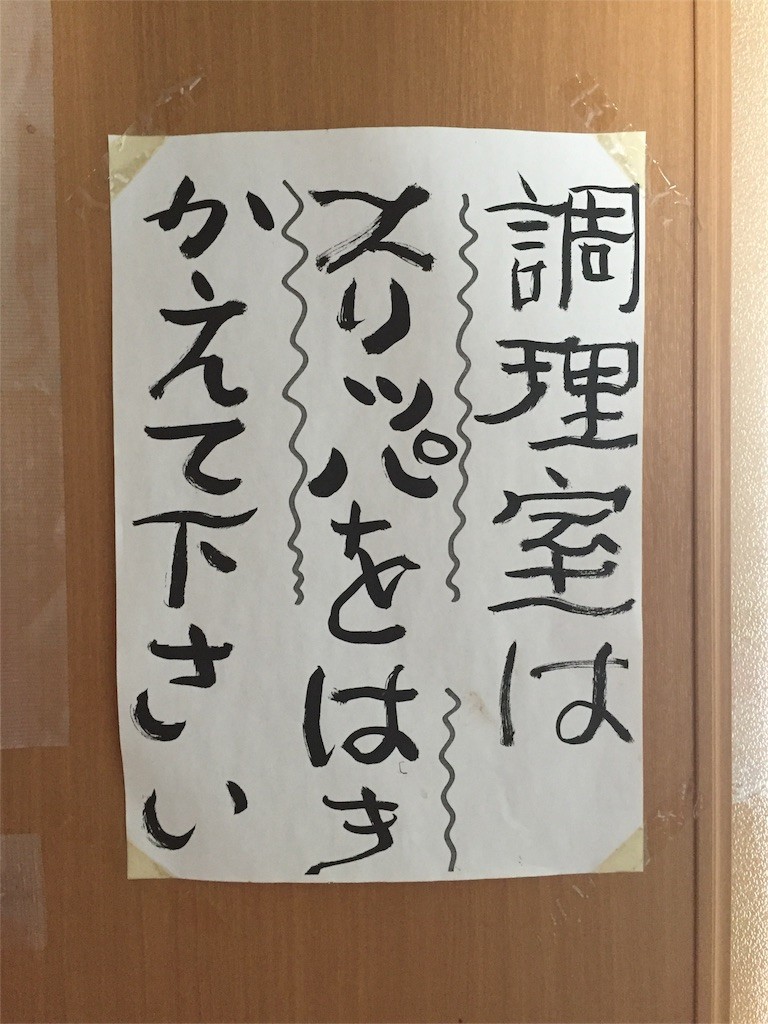 調理室は
スリッパをはき
かえて下さい